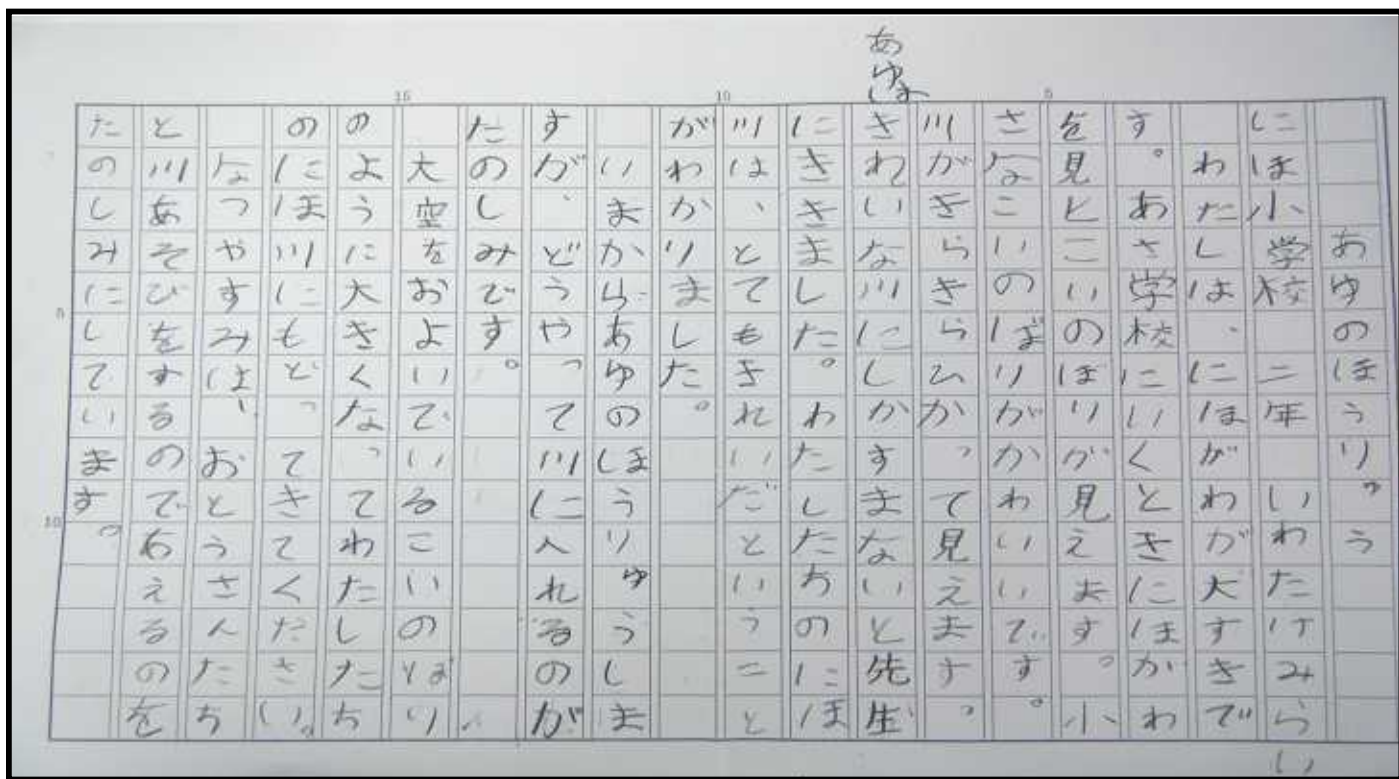 あゆのほうりゅう
にほ小学校二年 いわたけみらい
わたしは、にほがわが大すきで
す。あさ学校にいくときにほかわ
を見とこいのぼりが見えます。小
さなこいのぼりがかわいいです。
川がきらきらひかって見えます。
あゆは
きれいな川にしかすまないと先生
にききました。わたしたちのにほ
川は、とてもきれいだということ
がわかりました。
いまからあゆのほうりゅうしま
すが、どうやって川に入れるのが
たのしみです。
大空をおよいでいるこいのぼり
のように大きくなってわたしたち
のにほ川にもどってきてください。
なつやすみは、おとうさんたち
と川あそびをするのであえるのを
たのしみにしています。
5
10
15
5
10